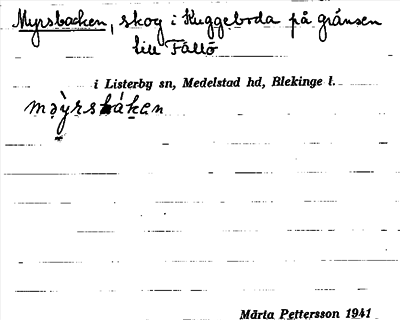 Myrsbacken, skog i Kuggeboda på gränsen
till Fållö
i Listerby sn, Medelstad hd, Blekinge l.
mə̀yrsbákən
Märta Pettersson 1941